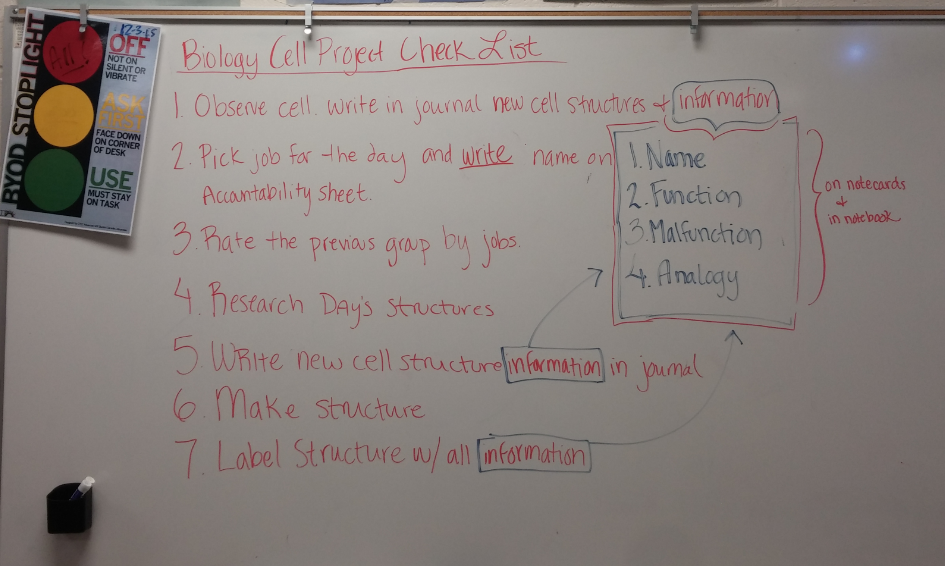 BYOD STOPLIGHT
All!
12-3-15
OFF
NOT ON
SILENT OR
VIBRATE
ASK
FIRST
FACE DOWN
ON CORNER
OF DESK
USE
MUST STAY
ON TASK
Biology Cell Project Check List
1. Observe cell. write in journal new cell structures + information
2. Pick job for the day and write name on
Accountability sheet.
3. Rate the previous group by jobs.
4. Research Day's structures
5. Write new cell structure information in journal
6. Make structure
7. Label Structure w/ all information
1. Name
2. Function
3. Malfunction
4. Analogy
on notecards
+
in notebook